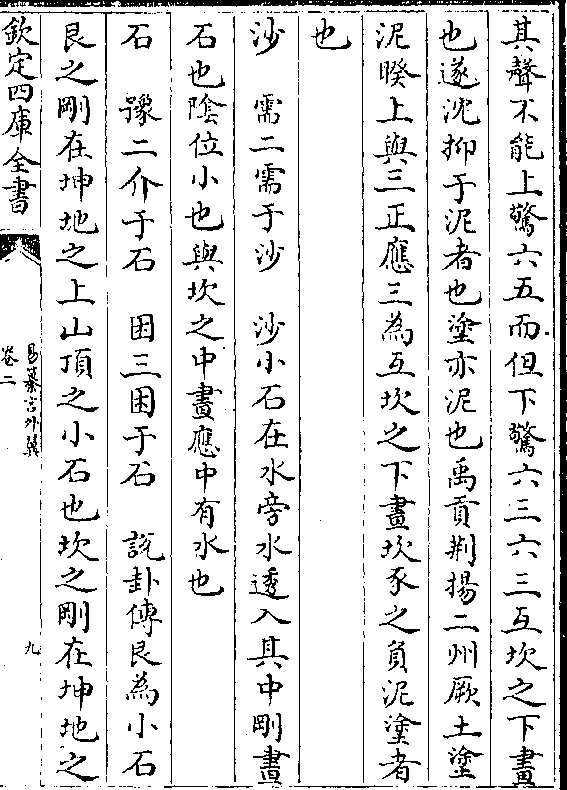 其聲不能上驚六五而但下驚六三六三互坎之下畫
也遂沈抑于泥者也塗亦泥也禹貢荆揚二州厥土塗
泥睽上與三正應三為互坎之下畫坎豕之負泥塗者
也
沙　需二需于沙　沙小石在水旁水透入其中剛畫
石也陰位小也與坎之中畫應中有水也
石　豫二介于石　困三困于石　説卦傳艮為小石
艮之剛在坤地之上山頂之小石也坎之剛在坤地之
欽定四庫全書
易纂言外翼
卷二
九